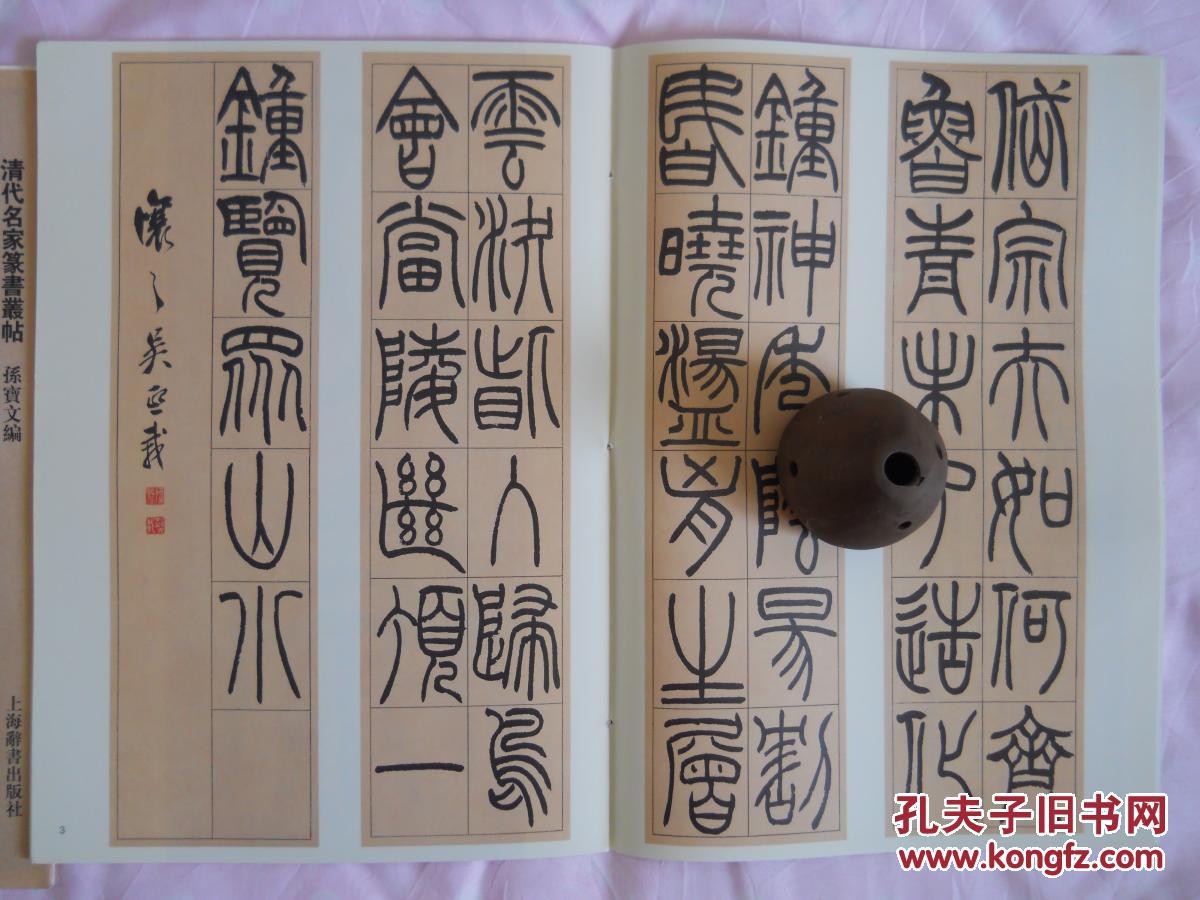 岱宗夫如何齊
魯青未了造化
鍾神秀陰昜割
昏曉盪胷生層
雲決眥入歸鳥
會當陵絕頂一
鍾覽眾山水
讓之吳熙載
3
清代名家篆書叢帖 孫寶文編
上海辭書出版社
孔夫子旧书网
www.kongfz.com